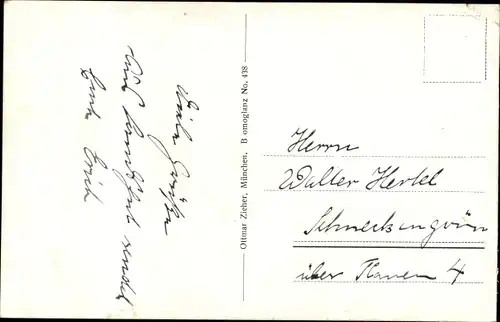 Viele Grüße
und
sendet
Erich
Ottmar Zieher, München. B omoglanz No. 438
Herrn
Walter Hertel
Schneckengrün
über Plauen 4